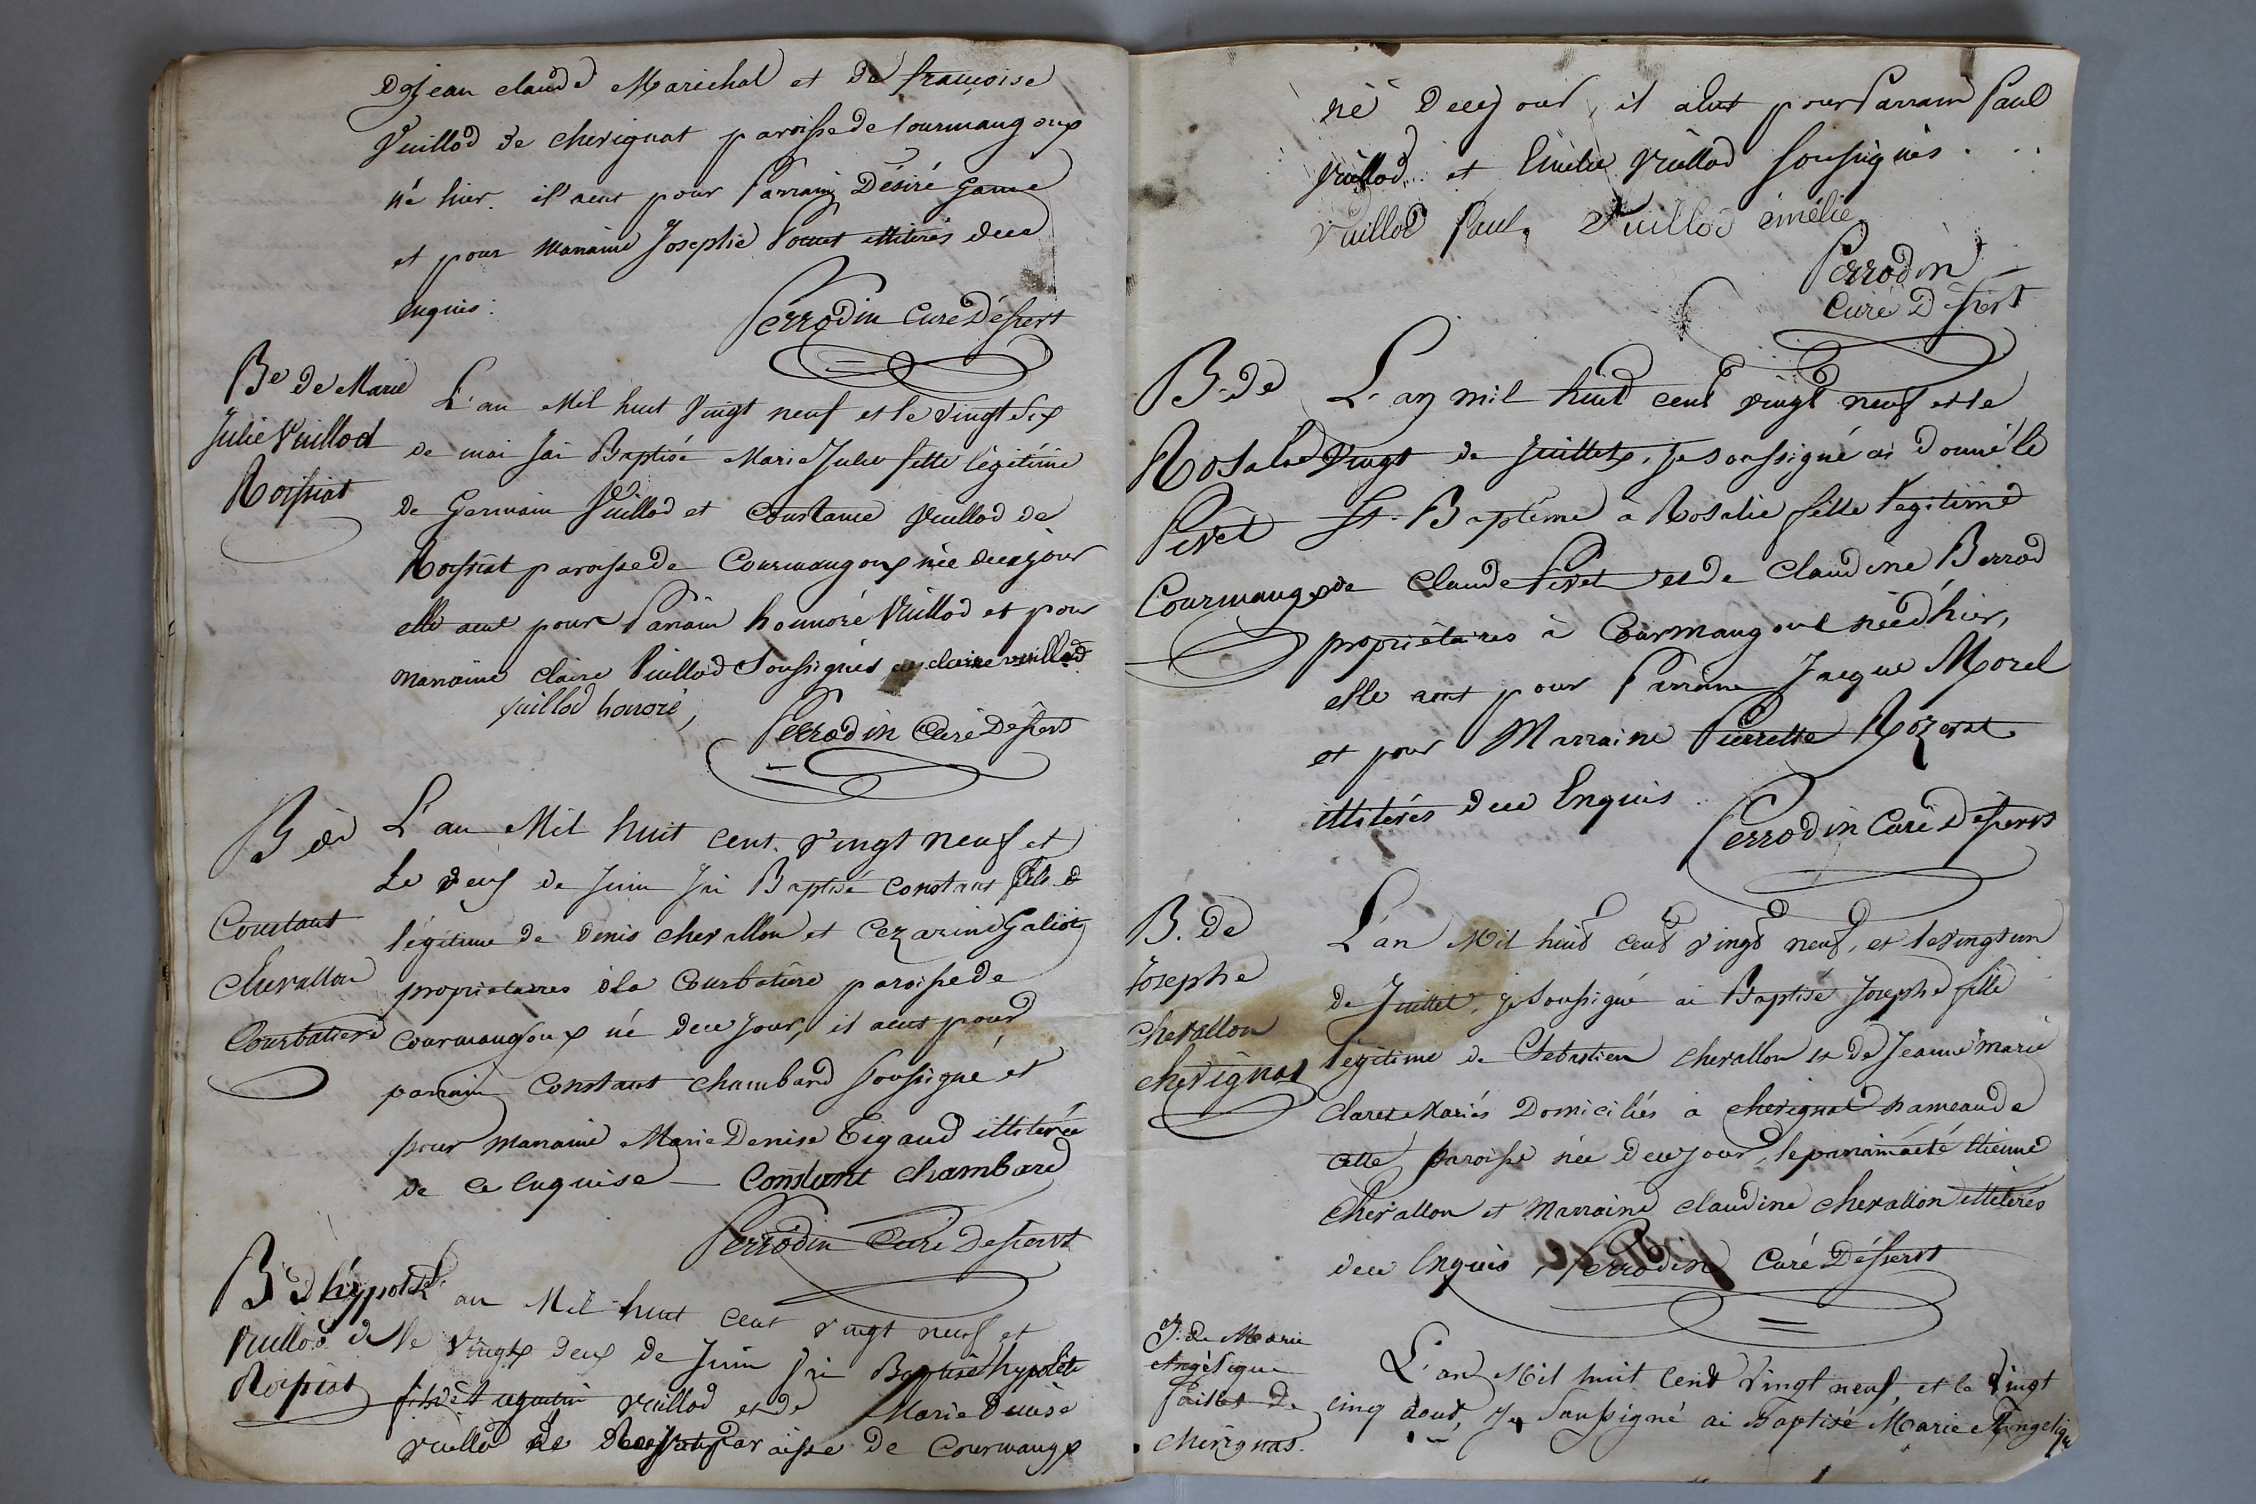 De jean claude Marichal et de francoise
Vuillod de cherignat paroisse de Courmangoux
né hier. il aeut pour Parrain Désiré Game
et pour marraine Josephe illiterés dece
enquis.
Perrodin Curé Déserv
Be de Marie
Julie Vuillod
Roissiat
L'an Mil huit Vingt neuf et le vingt six
de mai jai Baptisé Marie Julie fille légitime
de Germain Vuillod et Constance Vuillod de
Roissiat paroisse de Courmangoux née decejour
elle aeut pour Parrain honnoré Vuillod et pour
marraine claire Vuillod Soussignés claire vuillod
vuillod honoré,
Perrodin Curé Déserv
B de
Constant
Chevallon
Courbatiere
L'an Mil huit cent vingt neuf et
Le neuf de Juin Jai Baptisé constant fils
légitime de Denis chevallon et Cezarine Galion
propriétaires à la Courbatière paroisse de
Courmangoux né dece jour, il aeut pour
parrain Constant Chambard soussigné et
pour marraine Marie Denise Tigaud illitérée
de ce enquise — Constant Chambard
Perrodin Curé Deserv
B d'hypolite
Vuillod de
Roissiat
L'an Mil huit cent vingt neuf et
le vingt deux de Juin J'ai Baptisé hypolite
fils d'Augustin Vuillod et de Marie Denise
Vuillod de Roissiat Paroisse de Courmangx
né decejour, il aeut pour Parrain Paul
Vuillod et Emélie Vuillod soussignés.
Vuillod Paul, Vuillod émélie
Perrodin
Curé Déserv
B. de
Rosalie
Pivet
Courmangx
L'an mil huit cent vingt neuf et le
Vingt de Juillet, je soussigné ai donné le
St. Baptême a Rosalie fille légitime
de Claude Pivet et de Claudine Berrod
propriétaires à Courmangoux née d'hier,
elle aeut pour Parrain Jacque Morel
et pour Marraine Pierrette Rozerat
illitérés dece Enquis
Perrodin Curé Déserv
B. de
Josephe
chevallon
cherignat
L'an Mil huit cent vingt neuf, et le vingt un
de Juillet, je Soussigné ai Baptisé Josephe fille
légitime de Sebastien chevallon et de Jeanne marie
Claret Mariés Domiciliés à cherignat hameau de
cette paroisse née decejour, le parrain a été Etienne
Chevallon et Marraine Claudine Chevallon illitérés
dece Enquis, Perrodin Curé Déserv
B. de Marie
Angélique
Paillet de
Cherignat.
L'an Mil huit Cent Vingt neuf, et le Vingt
cinq aout, Je Soussigné ai Baptisé Marie Angelique